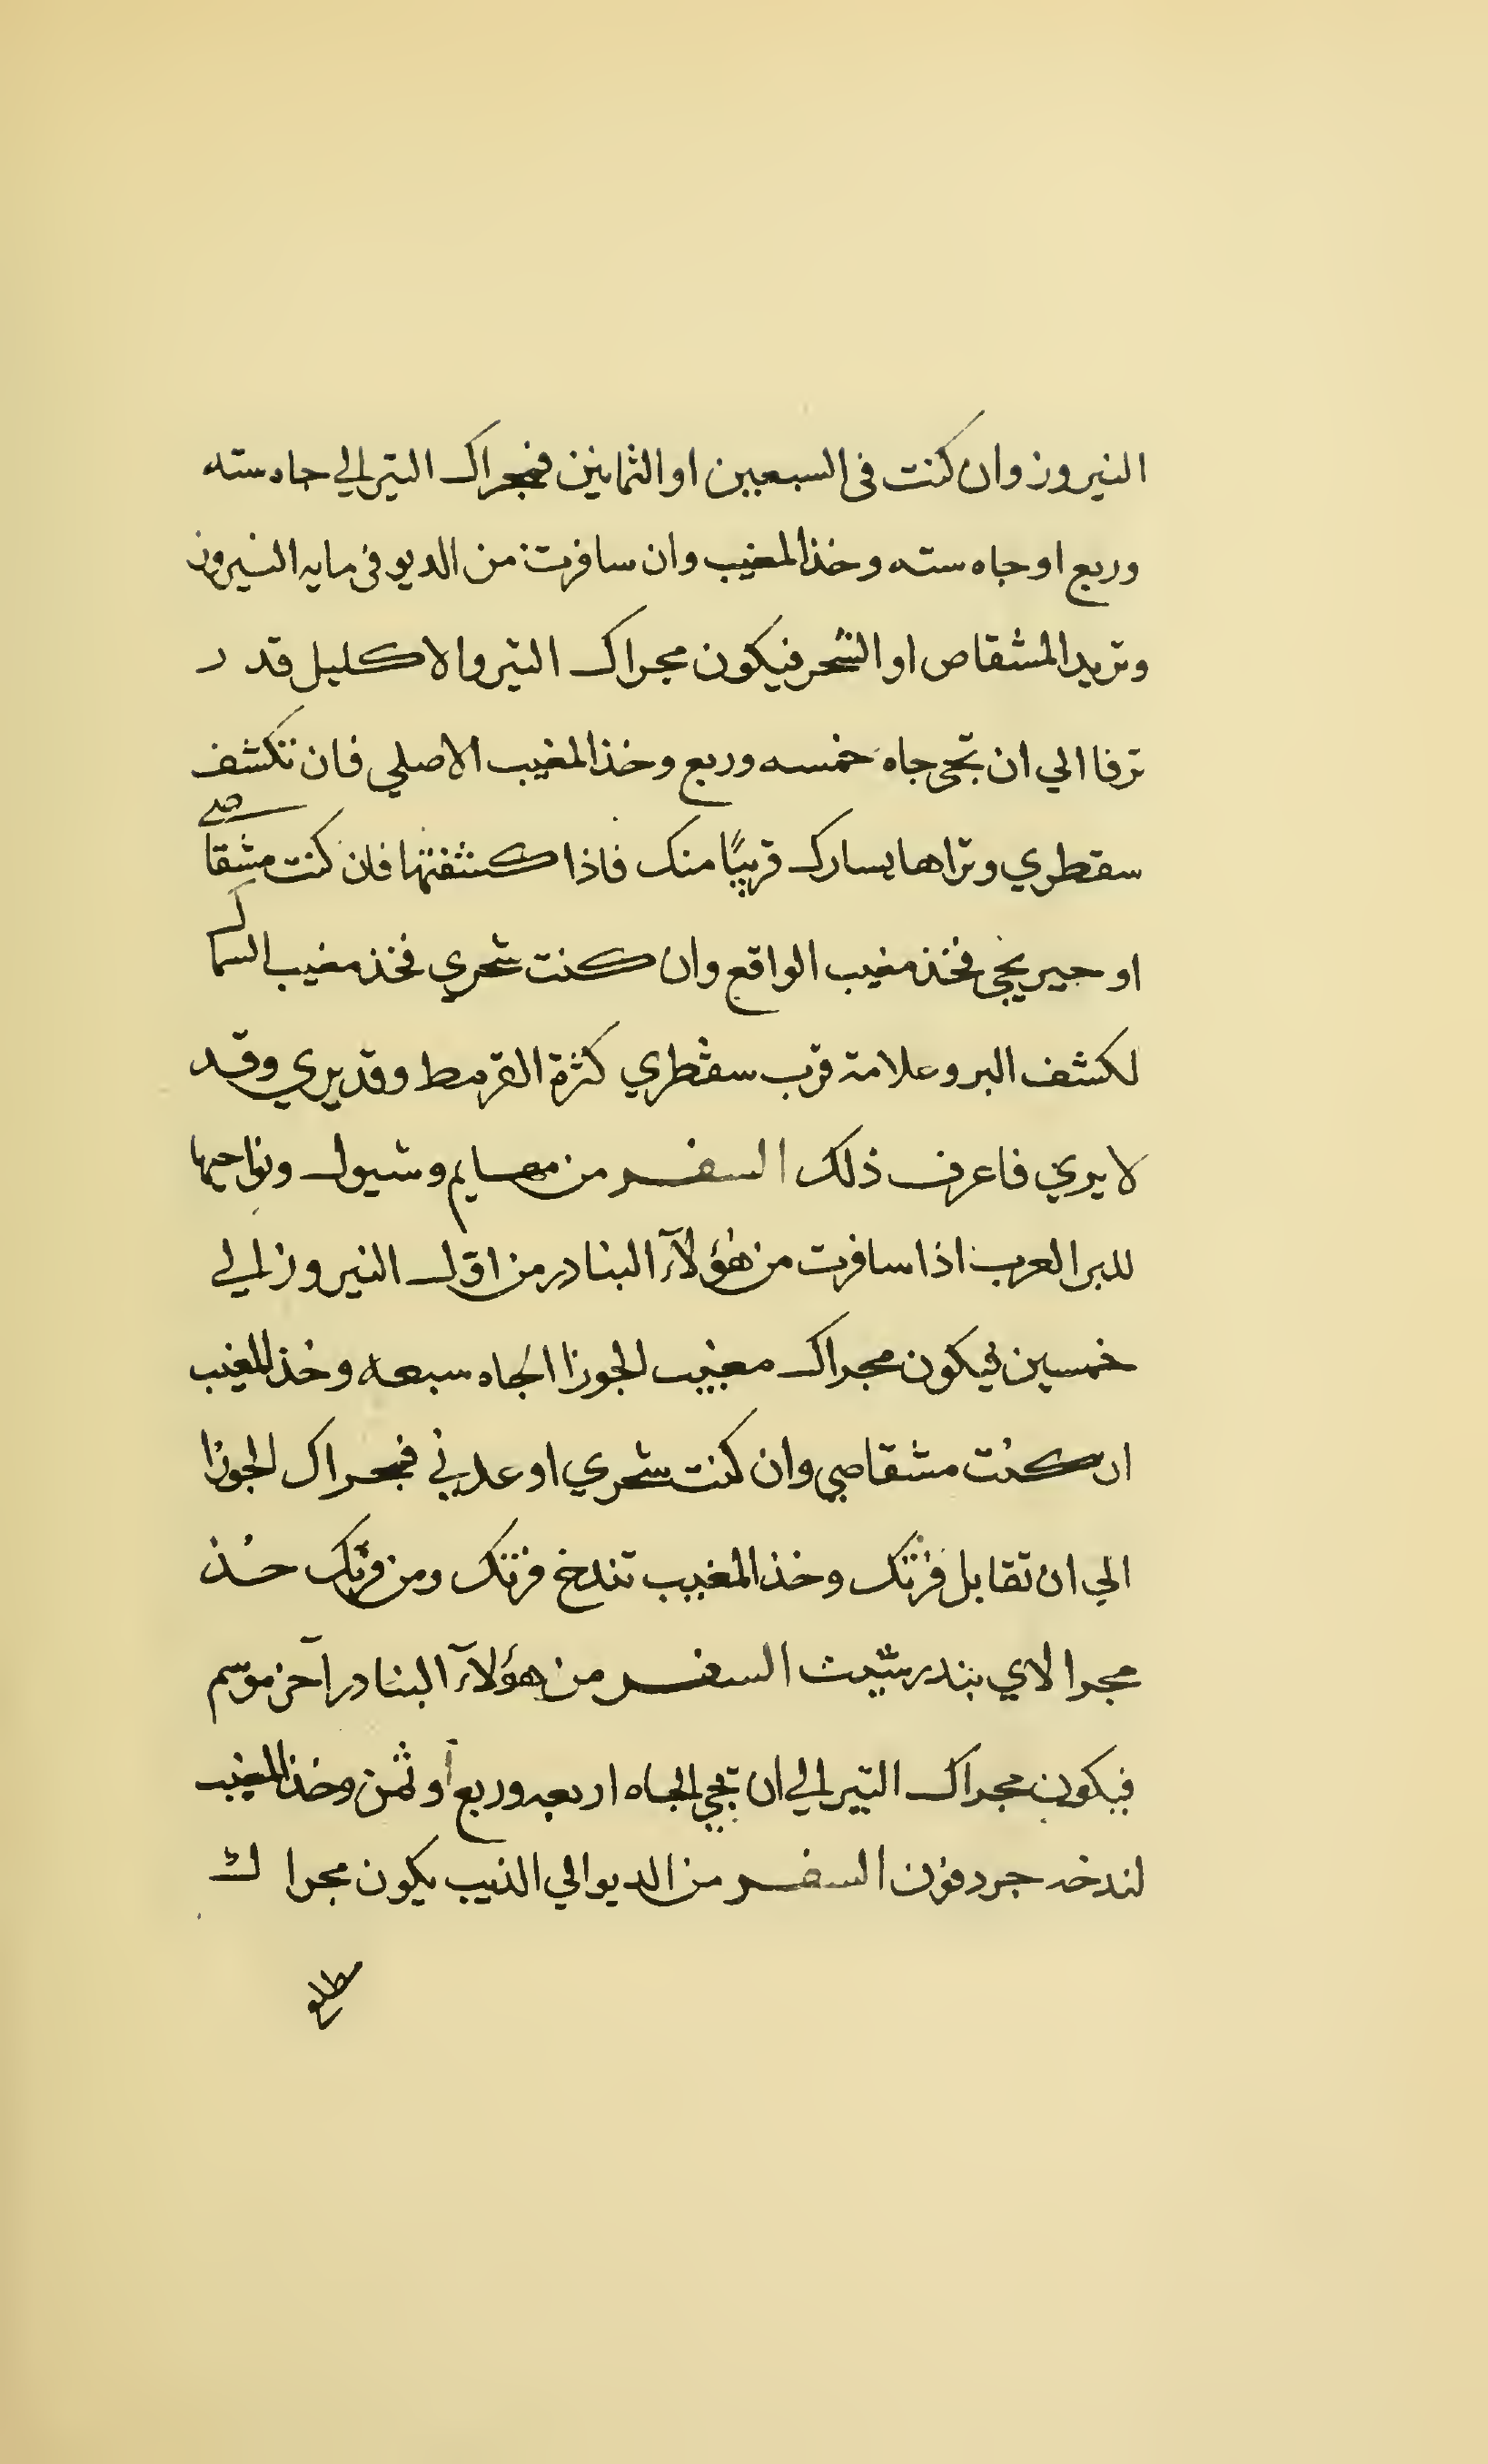 النيروز وان كنت فى السبعين او الثمانين فمجراك التير الي جاه سته
وربع او جاه سته وخذ المغيب وان سافرت من الديو فى مايه النيروز
وتريد المشقاص او الشحر فيكون مجراك التير والاكليل قدر
ترفا الي ان تجى جاه خمسه وربع وخذ المغيب الاصلي فان تكشف
سقطري وتراها يسارك قريبًا منك فاذا كشفتها فان كنت مشقاصي
او حيريجى فخذ مغيب الواقع وان كنت شحري فخذ مغيب السماك
لكشف البر وعلامة قرب سقطري كثرة القرمط وقد يري وقد
لا يري فاعرف ذلك السفر من مهايم وشيول ونواحيها
لبر العرب اذا سافرت من هؤلآء البنادر من اوّل النيروز الي
خمسين فيكون مجراك مغيب الجوزا الجاه سبعه وخذ المغيب
ان كنت مشقاصي وان كنت شحري او عدني فمجراك الجوزا
الي ان تقابل فرتك وخذ المغيب تندخ فرتك ومن فرتك خذ
مجرا لاي بندر شيت السفر من هؤلآء البنادر آخر موسم
فيكون مجراك التير الي ان تجي الجاه اربعه وربع أو ثمن وخذ المغيب
لندخه جردفون السفر من الديو الي الذيب يكون مجراك
مطلع